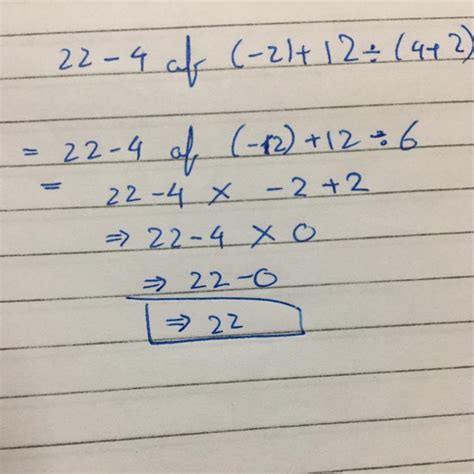 22 - 4 of (-2)+12÷(4+2)
= 22-4 of (-2)+12÷6
= 22-4 × -2+2
⇒ 22-4 × 0
⇒ 22-0
⇒ 22